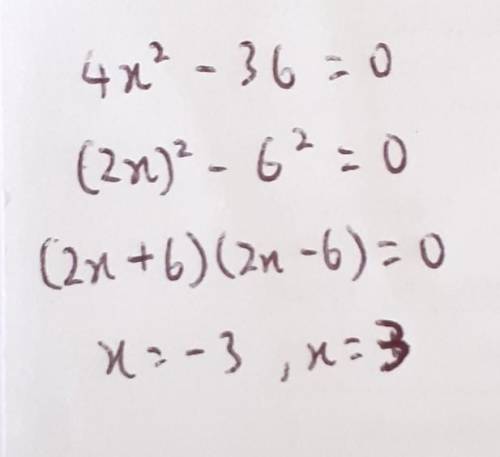 4x² - 36 = 0
(2x)² - 6² = 0
(2x+6)(2x-6) = 0
x = -3 , x = 3